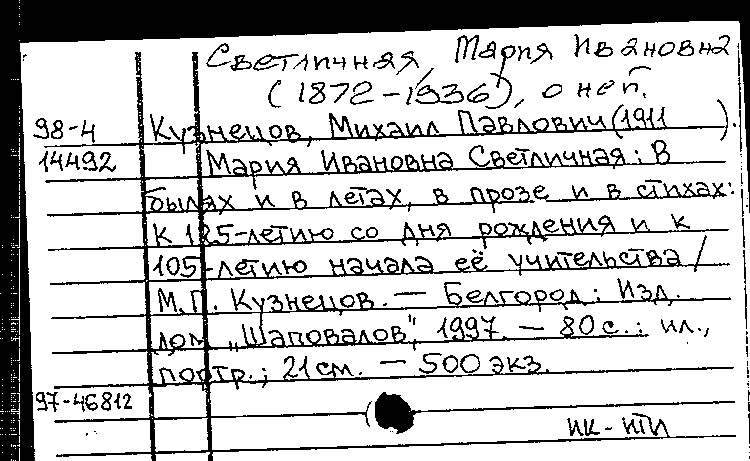 Светличная, Мария Ивановна
(1872-1936), о ней.
98-4 Кузнецов, Михаил Павлович (1911 ).
14492 Мария Ивановна Светличная: В
былях и в летах, в прозе и в стихах:
К 125-летию со дня рождения и к
105-летию начала её учительства /
М.П. Кузнецов. — Белгород: Изд.
дом „Шаповалов", 1997. — 80 с.: ил.,
портр.; 21 см. — 500 экз.
97-46812